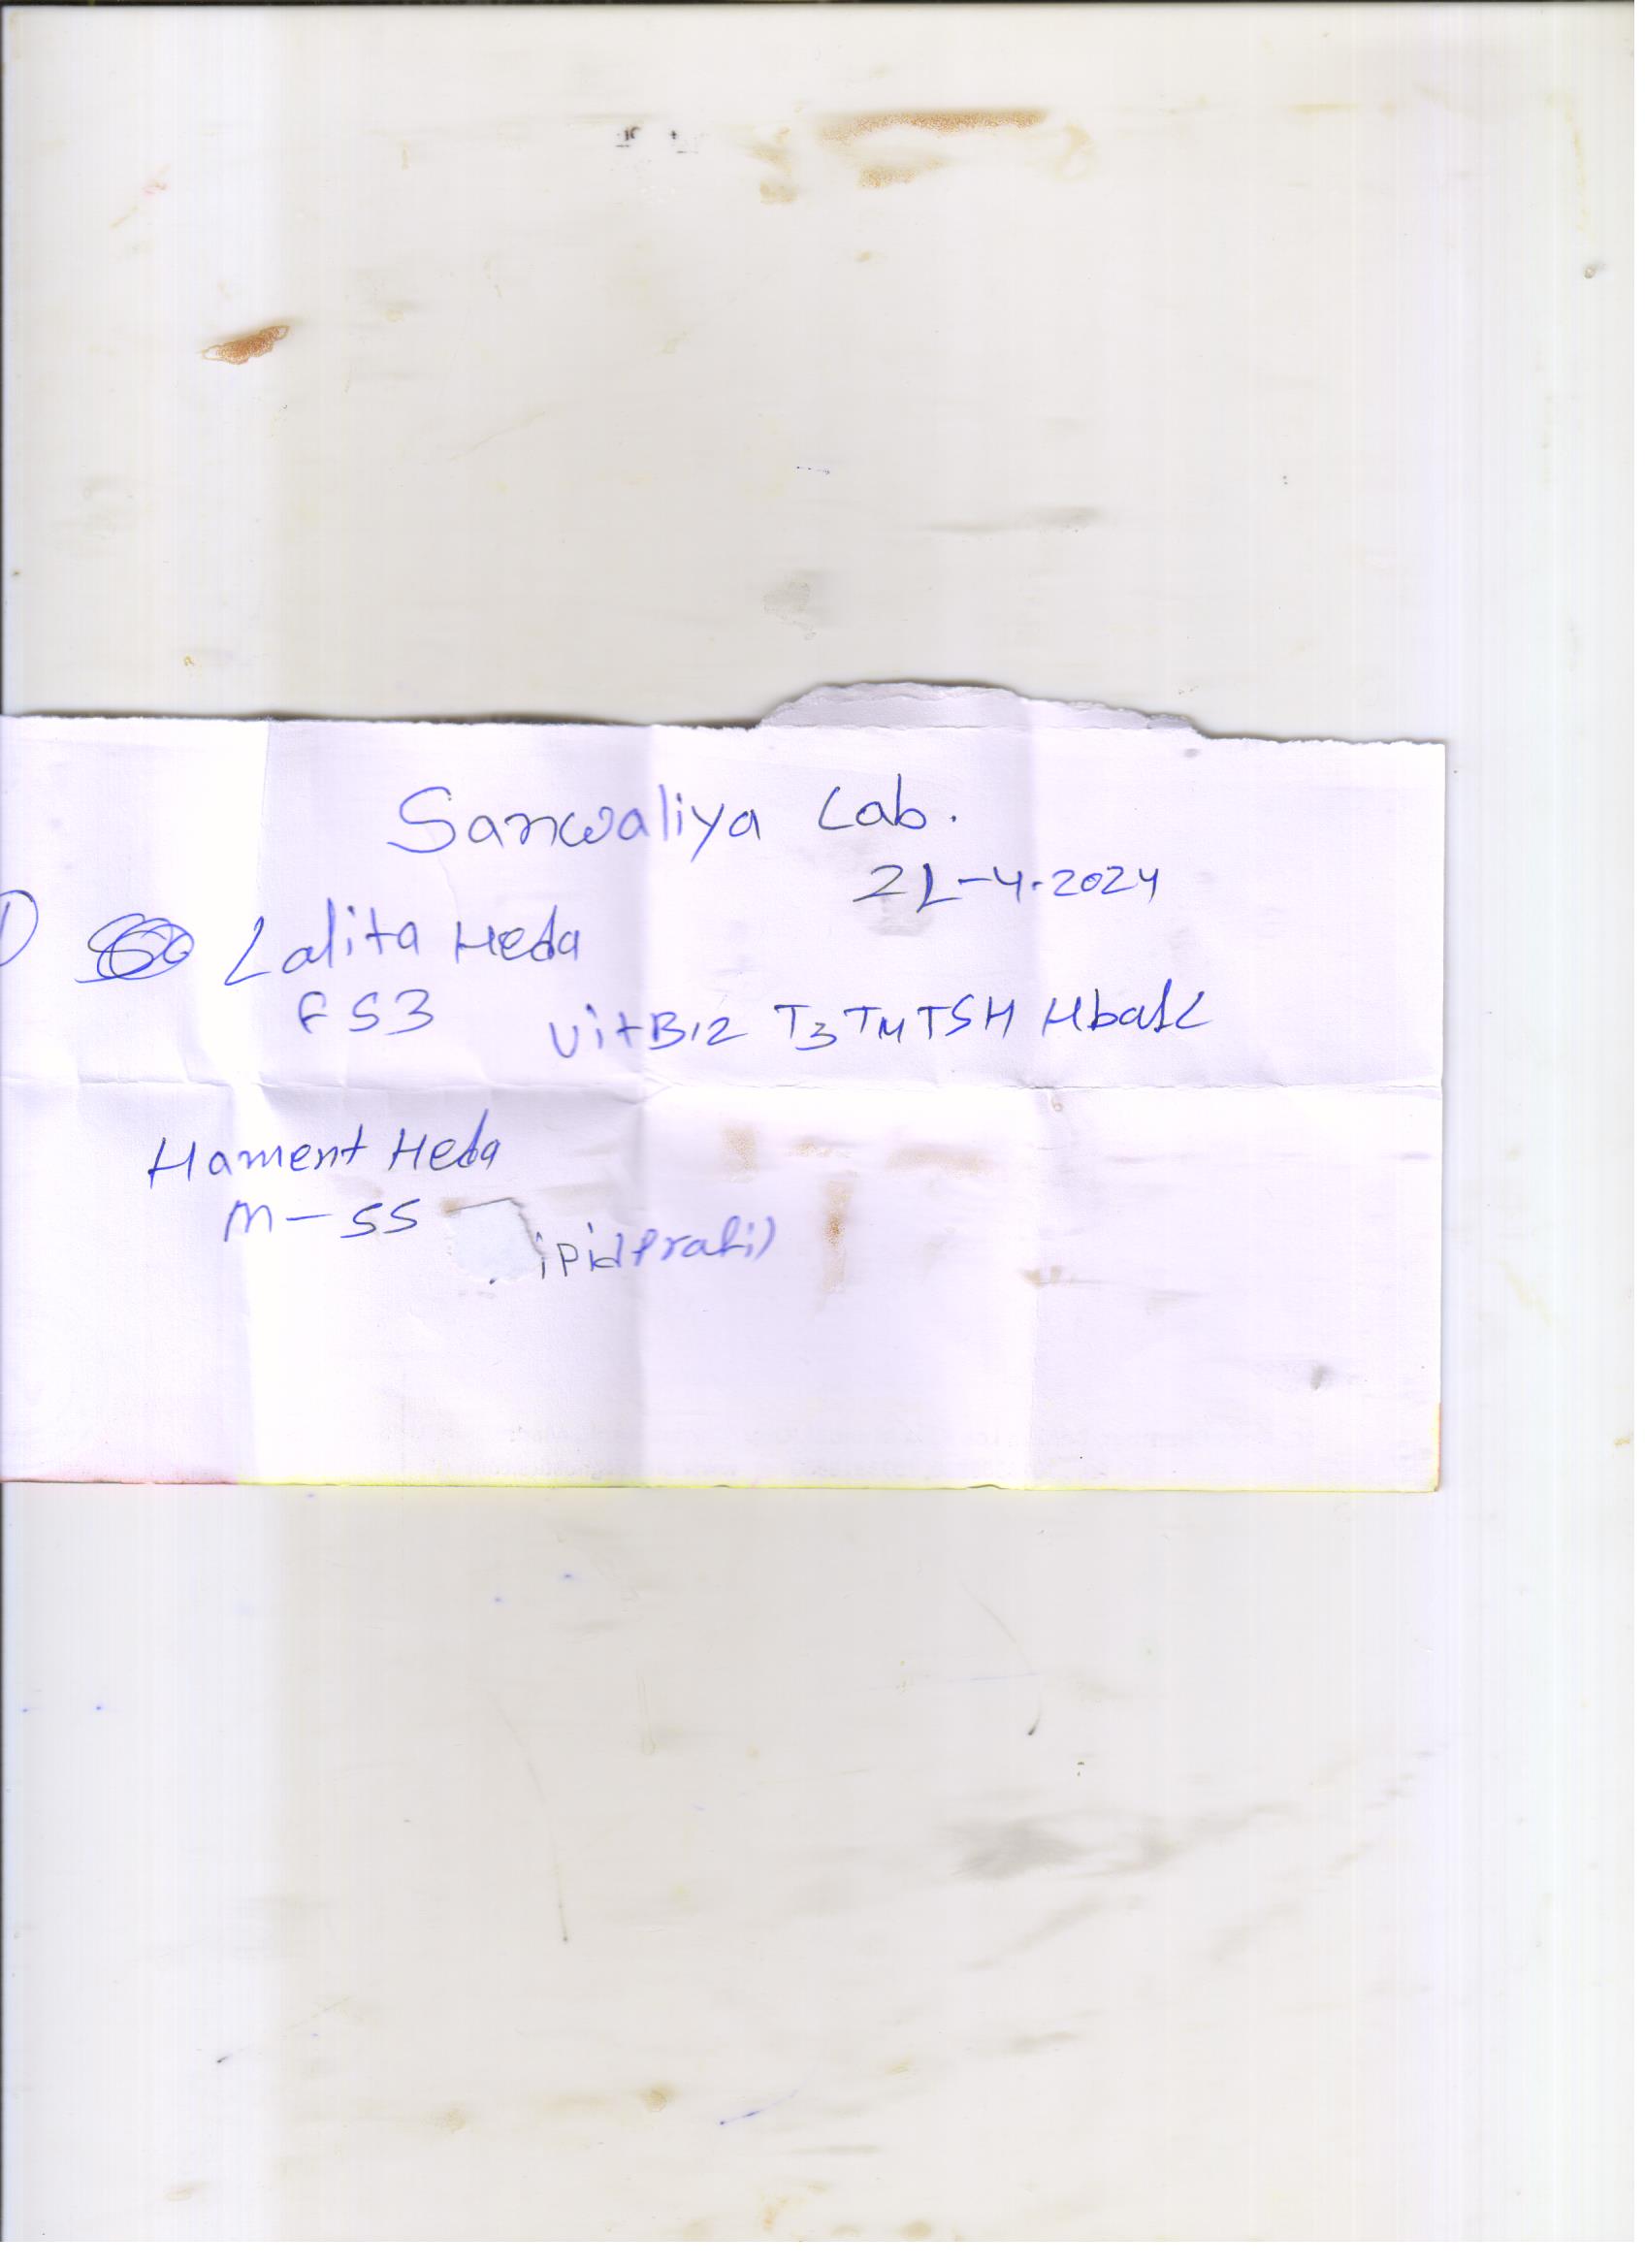 Sanwaliya Lab.
21-4-2024
1) Lalita Heda
F 53 Vit B12 T3 T4 TSH Hba1c
Hament Heda
M-55 ipid Profil